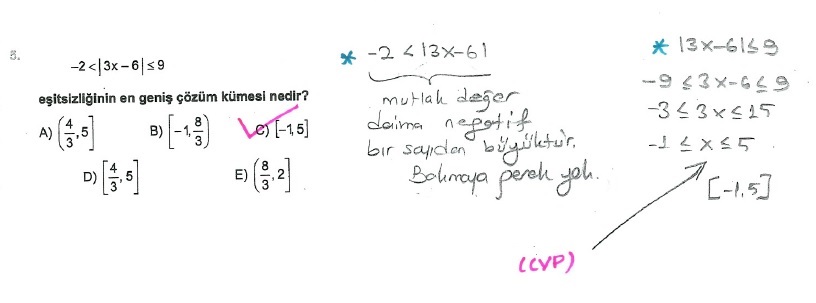 5.
-2 < |3x - 6| ≤ 9
eşitsizliğinin en geniş çözüm kümesi nedir?
A) (4/3, 5]
B) [-1, 8/3)
C) [-1, 5]
D) [4/3, 5]
E) (8/3, 2]
* -2 < |3x-6|
mutlak değer
daima negatif
bir sayıdan büyüktür.
Bakmaya gerek yok.
* |3x-6| ≤ 9
-9 ≤ 3x-6 ≤ 9
-3 ≤ 3x ≤ 15
-1 ≤ x ≤ 5
[-1,5]
(CVP)